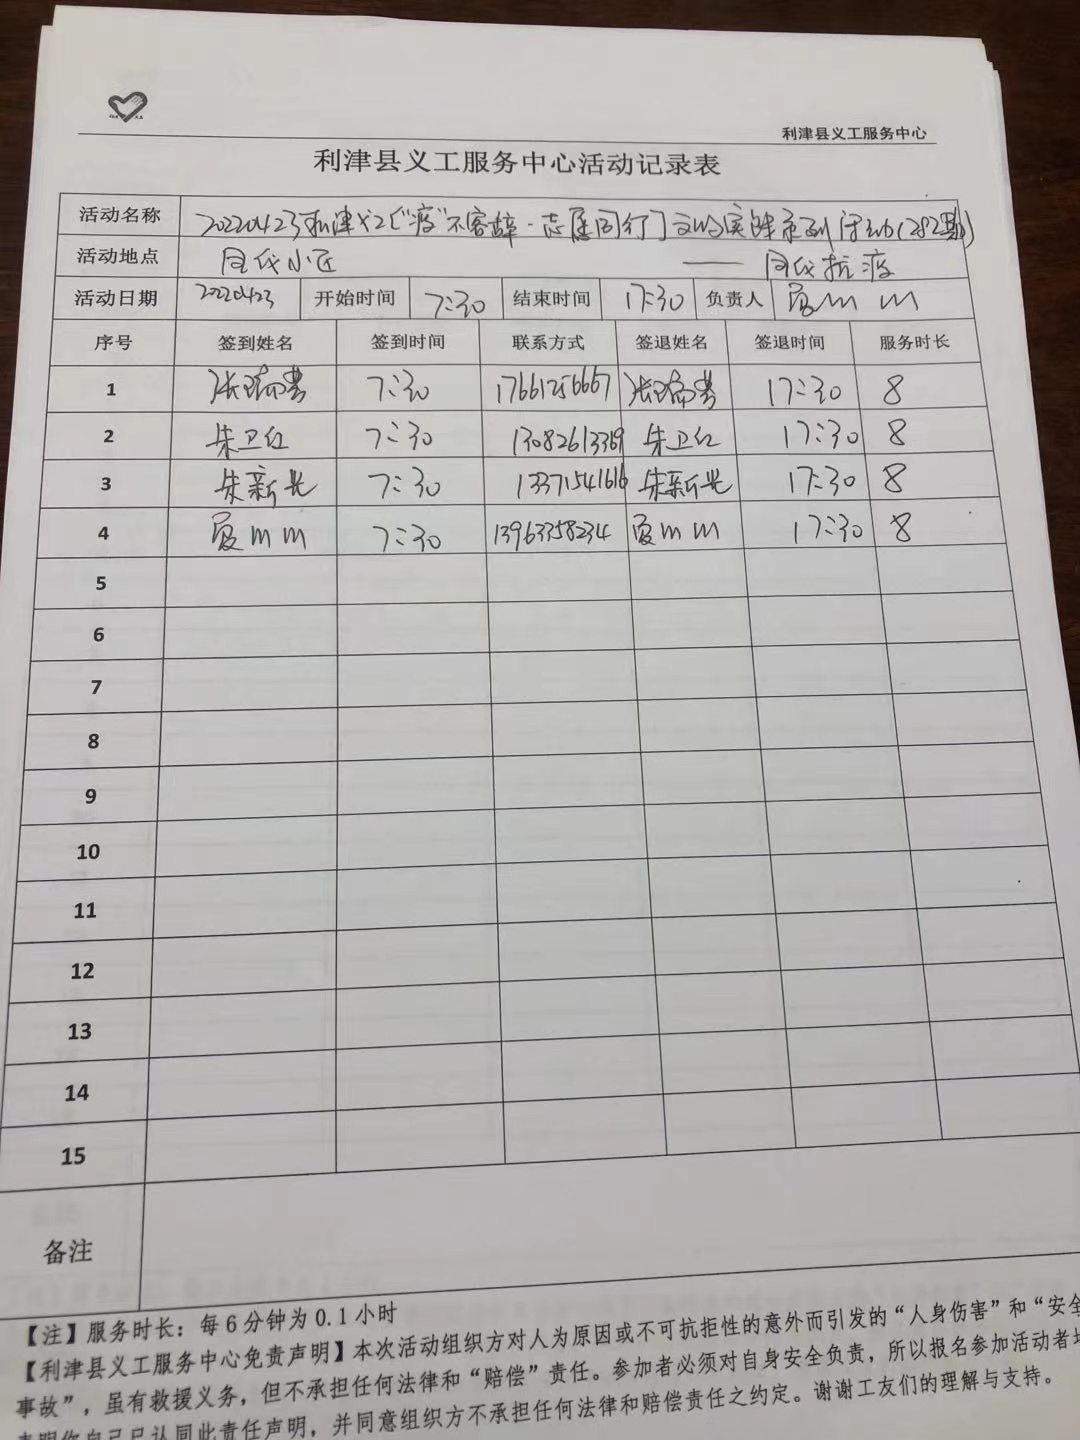 利津县义工服务中心
利津县义工服务中心活动记录表
活动名称 20220423利津义工"疫"不容辞·志愿同行 文明实践系列活动(282期)
活动地点 同代小区 —— 同代抗疫
活动日期 20220423 开始时间 7:30 结束时间 17:30 负责人
序号 签到姓名 签到时间 联系方式 签退姓名 签退时间 服务时长
1 7:30 17661256667 17:30 8
2 朱卫红 7:30 13082613369 朱卫红 17:30 8
3 朱新光 7:30 13371541616 朱新光 17:30 8
4 7:30 13963358234 17:30 8
5
6
7
8
9
10
11
12
13
14
15
备注
【注】服务时长：每6分钟为0.1小时
【利津县义工服务中心免责声明】本次活动组织方对人为原因或不可抗拒性的意外而引发的“人身伤害”和“安全
事故”，虽有救援义务，但不承担任何法律和“赔偿”责任。参加者必须对自身安全负责，所以报名参加活动者
表明你自己已认同此责任声明，并同意组织方不承担任何法律和赔偿责任之约定。谢谢工友们的理解与支持。